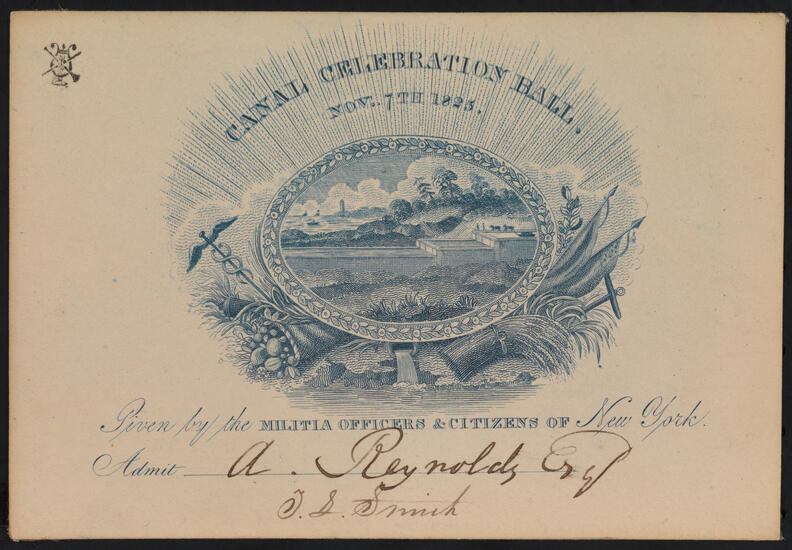 CANAL CELEBRATION BALL.
NOV. 7TH 1825.
Given by the MILITIA OFFICERS & CITIZENS OF New York.
Admit A. Reynolds Esq
T. L. Smith